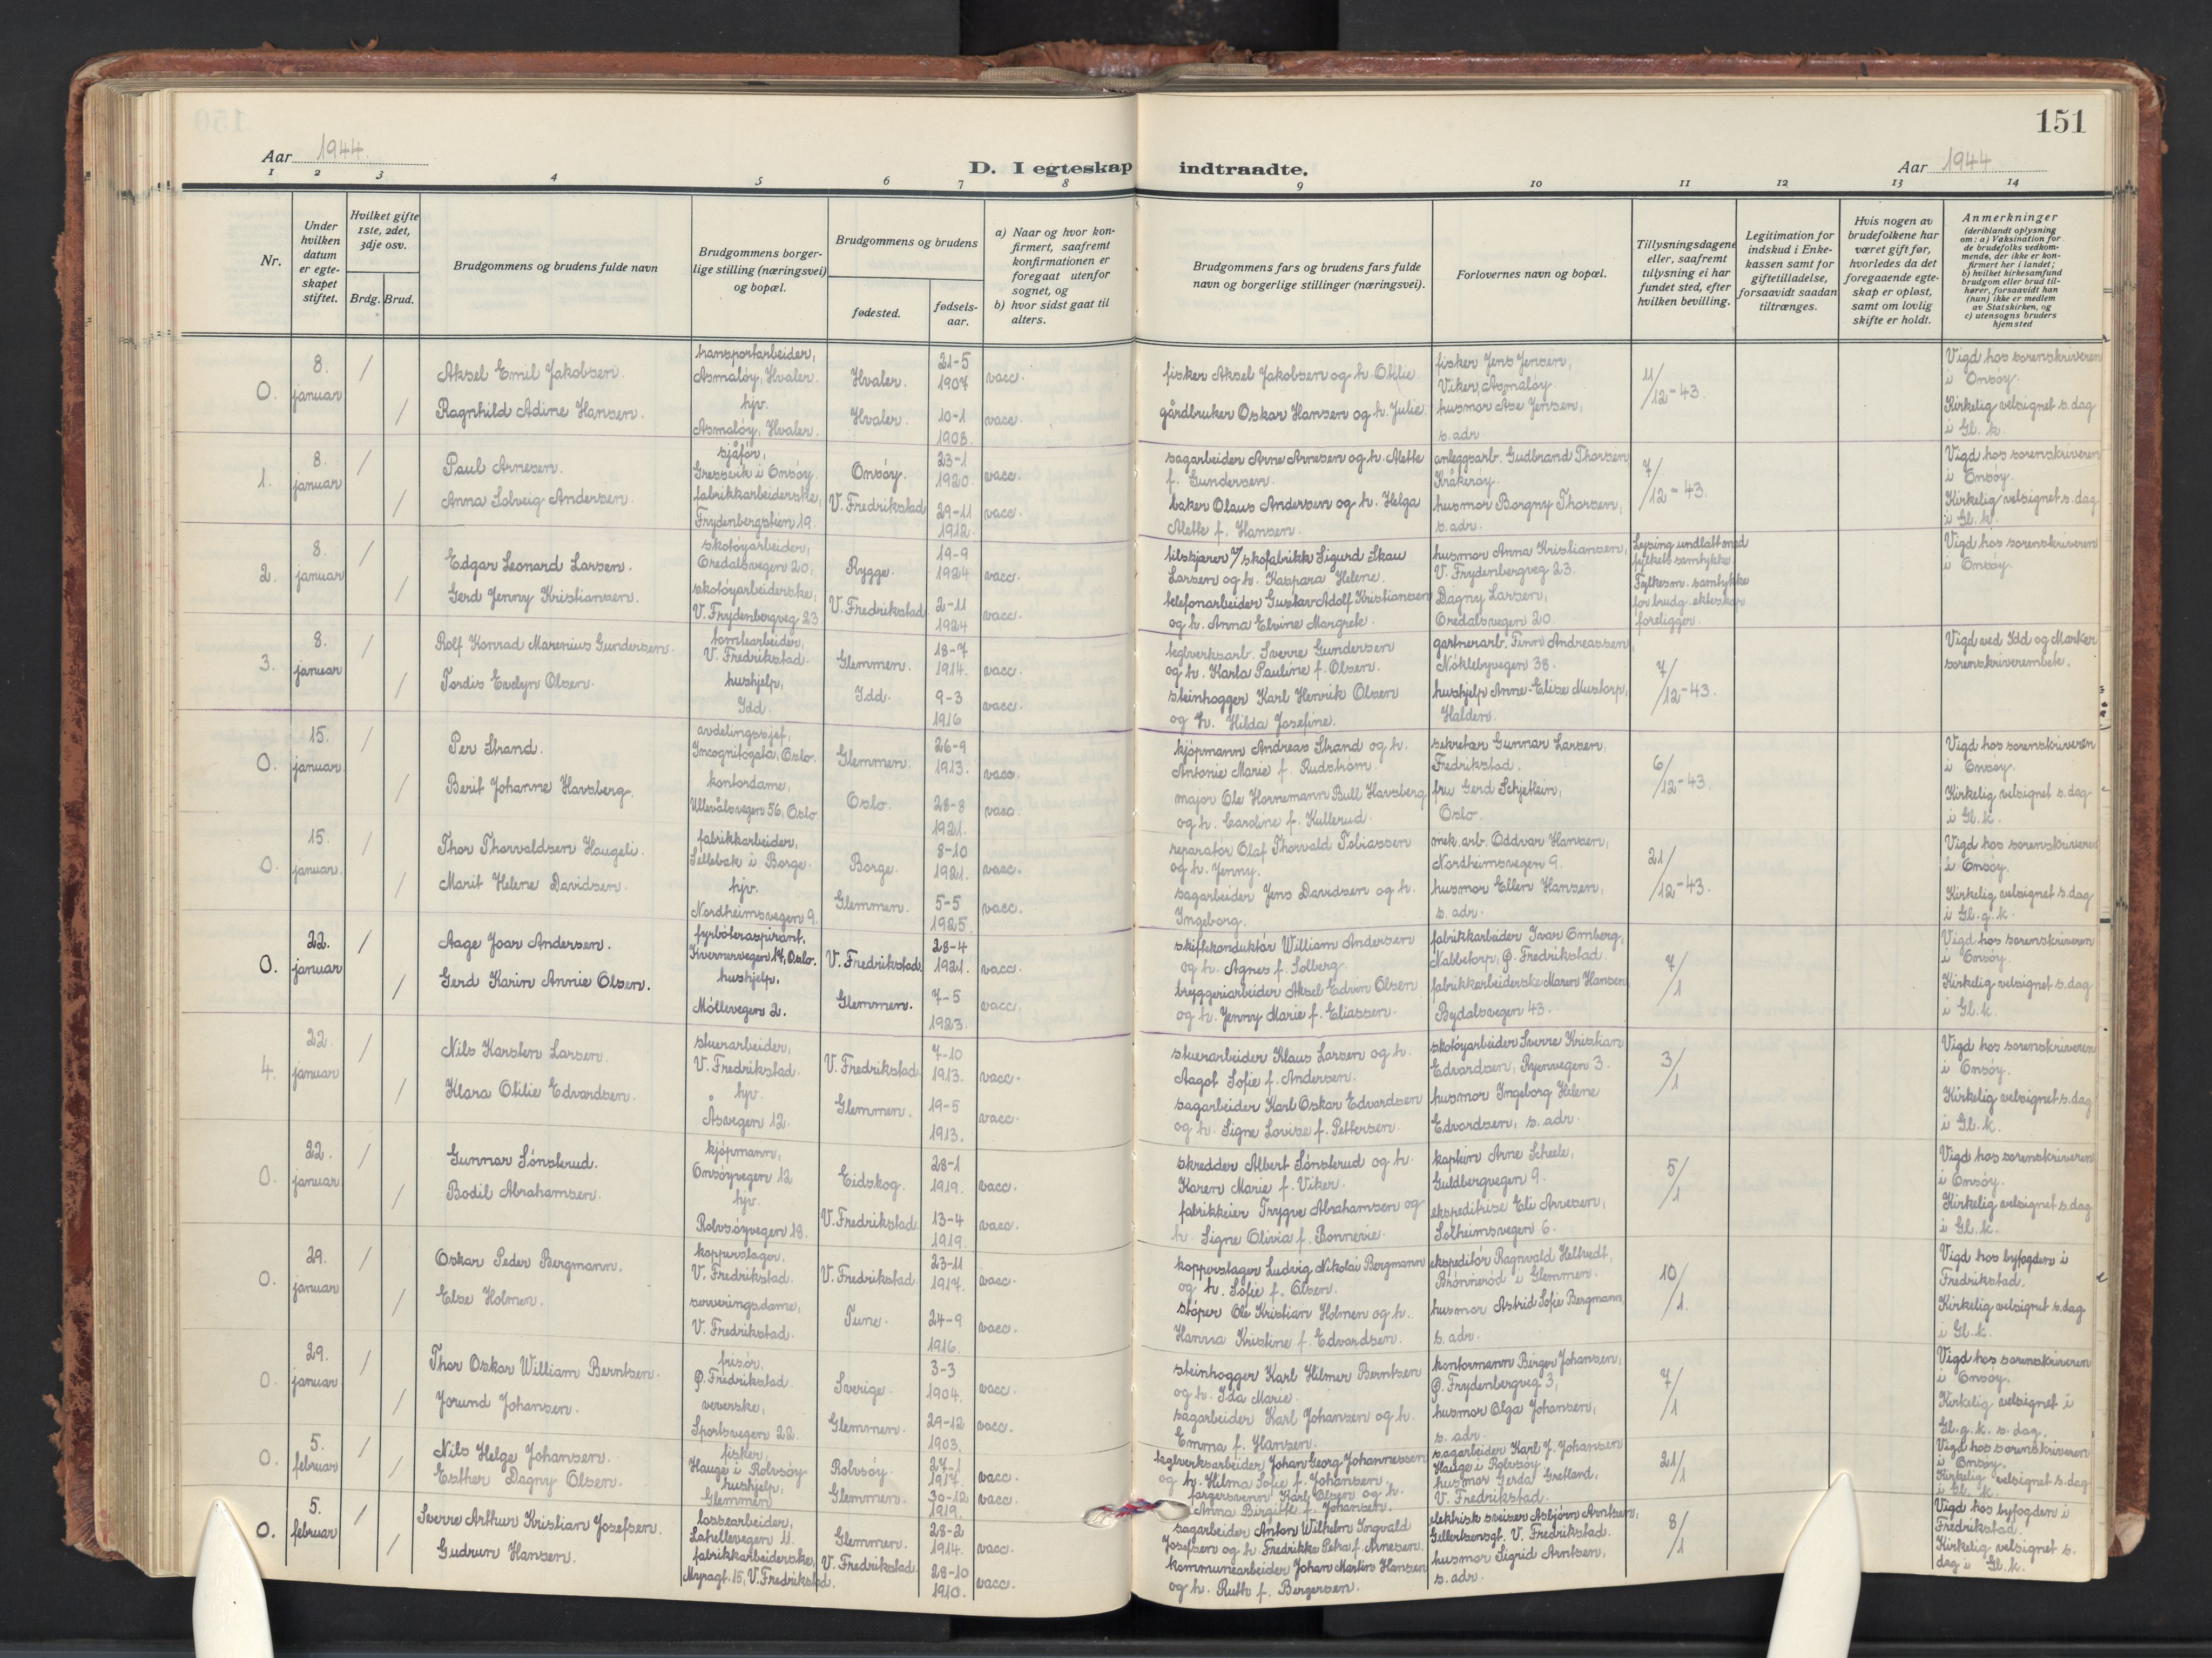 151
Aar 1944.
D. I egteskap indtraadte.
Aar 1944
1 2 3 4 5 6 7 8 9 10 11 12 13 14
Nr.
Under hvilken datum er egteskapet stiftet.
Hvilket gifte 1ste, 2det, 3dje osv.
Brdg. Brud.
Brudgommens og brudens fulde navn
Brudgommens borgerlige stilling (næringsvei) og bopæl.
Brudgommens og brudens
fødested.
fødselsaar.
a) Naar og hvor konfirmert, saafremt konfirmationen er foregaat utenfor sognet, og
b) hvor sidst gaat til alters.
Brudgommens fars og brudens fars fulde navn og borgerlige stillinger (næringsvei).
Forlovernes navn og bopæl.
Tillysningsdagene eller, saafremt tillysning ei har fundet sted, efter hvilken bevilling.
Legitimation for indskud i Enkekassen samt for giftetilladelse, forsaavidt saadan tiltrænges.
Hvis nogen av brudefolkene har været gift før, hvorledes da det foregaaende egteskap er opløst, samt om lovlig skifte er holdt.
Anmerkninger (deriblandt oplysning om: a) Vaksination for de brudefolks vedkommende, der ikke er konfirmert her i landet; b) hvilket kirkesamfund brudgom eller brud tilhører, forsaavidt han (hun) ikke er medlem av Statskirken, og c) utensogns bruders hjemsted
0. 8. januar / Aksel Emil Jakobsen. transportarbeider, Asmaløy, Hvaler. Hvaler. 21-5 1907 vacc. fisker Aksel Jakobsen og h. Otilie. fisker Jens Jensen, Viker, Asmaløy. 11/12-43. Vigd hos sorenskriveren i Onsøy.
/ Ragnhild Adine Hansen. hjv. Asmaløy, Hvaler. Hvaler. 10-1 1908. vacc. gårdbruker Oskar Hansen og h. Julie. husmor Åse Jensen, s. adr. Kirkelig velsignet s. dag i Gl. k.
1. 8. januar / Paul Arnesen. sjåfør, Gressvik i Onsøy. Onsøy. 23-1 1920. vacc. sagarbeider Arne Arnesen og h. Alette f. Gundersen. anleggsarb. Gudbrand Thorsen Kråkerøy. 7/12-43. Vigd hos sorenskriveren i Onsøy.
/ Anna Solveig Andersen. fabrikkarbeiderske, Frydenbergstien 19. V. Fredrikstad 29-11 1912. vacc. baker Olaus Andersen og h. Helga Alette f. Hansen. husmor Borgny Thorsen, s. adr. Kirkelig velsignet s. dag i Gl. k.
2. 8. januar / Edgar Leonard Larsen. skotøyarbeider, Oredalsvegen 20, Rygge. 19-9 1924 vacc. tilskjærer v/ skofabrikk Sigurd Skau Larsen og h. Kaspara Helene. husmor Anna Kristiansen, V. Frydenbergveg 23. Lysing undlatt med fylkets samtykke Vigd hos sorenskriveren i Onsøy.
/ Gerd Jenny Kristiansen. skotøyarbeiderske, V. Frydenbergveg 23 V. Fredrikstad 2-11 1924 vacc. telefonarbeider Gustav Adolf Kristiansen og h. Anna Elvine Margrete. Dagny Larsen, Oredalsvegen 20. Fylkesm. samtykke for brudg. ekteskap foreligger.
3. 8. januar / Rolf Konrad Marenius Gundersen. tomtearbeider, V. Fredrikstad. Glemmen. 18-7 1914. vacc. teglverksarb. Sverre Gundersen og h. Karla Pauline f. Olsen. gartnerarb. Finn Andreassen, Nøklebyvegen 38. 7/12-43. Vigd ved Idd og Marker sorenskriverembete.
/ Tordis Evelyn Olsen. hushjelp, Idd. Idd. 9-3 1916 vacc. steinhogger Karl Henrik Olsen og h. Hilda Josefine. hushjelp Anne-Elise Mustorp, Halden.
0. 15. januar / Per Strand. avdelingssjef, Incognitogata, Oslo. Glemmen. 26-9 1913. vacc. kjøpmann Andreas Strand og h. Antonie Marie f. Rudstrøm. sekretær Gunnar Larsen, Fredrikstad. 6/12-43. Vigd hos sorenskriveren i Onsøy.
/ Berit Johanne Havsberg. kontordame, Ullevålsvegen 56, Oslo Oslo. 28-8 1921. vacc. major Ole Hornemann Bull Havsberg og h. Caroline f. Kullerud. fru Gerd Schjetlein, Oslo. Kirkelig velsignet s. dag i Gl. k.
0. 15. januar / Thor Thorvaldsen Haugeli. fabrikkarbeider, Sellebak i Borge. Borge. 8-10 1921. vacc. reparatør Olaf Thorvald Tobiassen og h. Jenny. mek. arb. Oddvar Hansen, Nordheimsvegen 9. 21/12-43. Vigd hos sorenskriveren i Onsøy.
/ Marit Helene Davidsen. hjv. Nordheimsvegen 9. Glemmen. 5-5 1925. vacc. sagarbeider Jens Davidsen og h. Ingeborg. husmor Ellen Hansen, s. adr. Kirkelig velsignet s. dag i Gl. g. k.
0. 22. januar / Aage Joar Andersen. fyrbøteraspirant, Kvernervegen 14, Oslo. V. Fredrikstad. 28-4 1921. vacc. skiftekonduktør William Andersen og h. Agnes f. Solberg. fabrikkarbeider Ivar Omberg, Nabbetorp, Ø. Fredrikstad. 7/1 Vigd hos sorenskriveren i Onsøy.
/ Gerd Karin Annie Olsen. hushjelp, Møllevegen 2. Glemmen. 7-5 1923. vacc. bryggeriarbeider Aksel Edvin Olsen og h. Jenny Marie f. Eliassen. fabrikkarbeiderske Maren Hansen Bydalsvegen 43. Kirkelig velsignet s. dag i Gl. k.
4. 22. januar / Nils Karsten Larsen. stuerarbeider, V. Fredrikstad. V. Fredrikstad 7-10 1913. vacc. stuerarbeider Klaus Larsen og h. Aagot Sofie f. Andersen. skotøyarbeider Sverre Kristian Edvardsen, Ryenvegen 3. 3/1 Vigd hos sorenskriveren i Onsøy.
/ Klara Otilie Edvardsen. hjv. Åsvegen 12. Glemmen. 19-5 1913. vacc. sagarbeider Karl Oskar Edvardsen og h. Signe Lovise f. Pettersen. husmor Ingeborg Helene Edvardsen, s. adr. Kirkelig velsignet s. dag i Gl. k.
0. 22. januar / Gunnar Sønsterud. kjøpmann, Onsøyvegen 12 Eidskog. 28-1 1919. vacc. skredder Albert Sønsterud og h. Karen Marie f. Viker. kaptein Arne Scheele, Guldbergvegen 9. 5/1 Vigd hos sorenskriveren i Onsøy.
/ Bodil Abrahamsen. hjv. Rolvsøyvegen 18. V. Fredrikstad. 13-4 1919. vacc. fabrikkeier Trygve Abrahamsen og h. Signe Olivia f. Bonnevie. ekspeditrise Eli Arnesen, Solheimsvegen 6. Kirkelig velsignet s. dag i Gl. k.
0. 29. januar / Oskar Peder Bergmann. kopperslager, V. Fredrikstad. V. Fredrikstad. 23-11 1917. vacc. kopperslager Ludvig Nikolai Bergmann og h. Sofie f. Olsen. ekspeditør Ragnvald Heltvedt, Brønnerød i Glemmen. 10/1. Vigd hos byfogden i Fredrikstad.
/ Else Holmen. serveringsdame, V. Fredrikstad. Tune. 24-9 1916. vacc. støper Ole Kristian Holmen og h. Hanna Kristine f. Edvardsen. husmor Astrid Sofie Bergmann, s. adr. Kirkelig velsignet s. dag i Gl. k.
0. 29. januar / Thor Oskar William Berntsen. frisør, Ø. Fredrikstad. Sverige. 3-3 1904. vacc. steinhogger Karl Hilmer Berntsen og h. Ida Marie. kontormann Birger Johansen, Ø. Frydenbergveg 3, 7/1 Vigd hos sorenskriveren i Onsøy.
/ Jorund Johansen. veverske, Sportsvegen 22. Glemmen. 29-12 1903. vacc. sagarbeider Karl Johansen og h. Emma f. Hansen. husmor Olga Johansen, s. adr. Kirkelig velsignet i Gl. g. k. s. dag.
0. 5. februar / Nils Helge Johansen. fisker, Hauge i Rolvsøy Rolvsøy. 27-1 1917. vacc. teglverksarbeider Johan Georg Johannessen og h. Hilma Sofie f. Johansen. sagarbeider Karl J. Johansen Hauge i Rolvsøy. 21/1 Vigd hos sorenskriveren i Onsøy.
/ Esther Dagny Olsen. hushjelp, Glemmen Glemmen. 30-12 1919. vacc. fargersvenn Karl Olsen og h. Anna Birgitte f. Johansen. husmor Gerda Gretland, V. Fredrikstad. Kirkelig velsignet s. dag i Gl. k.
0. 5. februar / Sverre Arthur Kristian Josefsen. lossearbeider, Lahellevegen 11. Glemmen. 28-2 1914. vacc. sagarbeider Anton Wilhelm Ingvald Josefsen og h. Fredrikke Petra f. Arnesen. elektrisk sveiser Asbjørn Arntsen, Gellertsensgt. V. Fredrikstad. 8/1 Vigd hos byfogden i Fredrikstad.
/ Gudrun Hansen. fabrikkarbeiderske, Myragt. 15, V. Fredrikstad. V. Fredrikstad. 28-10 1910. vacc. kommunearbeider Johan Martin Hansen og h. Ruth f. Bergersen. husmor Sigrid Arntsen, s. adr. Kirkelig velsignet s. dag i Gl. k.